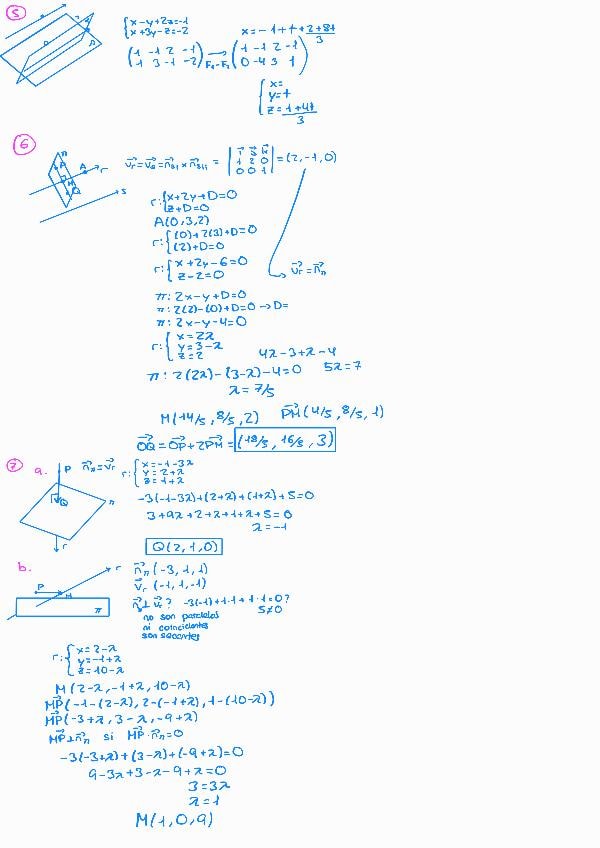 5
{x-y+2z=-1
x+3y-z=-2
(1 -1 2 -1
1 3 -1 -2) → F₂-F₁ (1 -1 2 -1
0 -4 3 1)
x = -1+t+2+8t/3
{x=
y=t
z=1+4t/3
6
π P A r M Q s
v⃗r=v⃗s=n⃗si×n⃗sii = |i⃗ j⃗ k⃗
1 2 0
0 0 1| = (2,-1,0)
r:{x+2y+D=0
z+D=0
A(0,3,2)
r:{(0)+2(3)+D=0
(2)+D=0
r:{x+2y-6=0
z-2=0
v⃗r=n⃗π
π: 2x-y+D=0
π: 2(2)-(0)+D=0 → D=
π: 2x-y-4=0
r:{x=2λ
y=3-λ
z=2
4λ-3+λ-4
π: 2(2λ)-(3-λ)-4=0
5λ=7
λ=7/5
M(14/5, 8/5, 2) PM⃗(4/5, 8/5, 1)
OQ⃗=OP⃗+2PM⃗=(18/5, 16/5, 3)
7 a.
P n⃗π=v⃗r
r:{x=-1-3λ
y=2+λ
z=1+λ
Q π r
-3(-1-3λ)+(2+λ)+(1+λ)+5=0
3+9λ+2+λ+1+λ+5=0
λ=-1
Q(2,1,0)
b.
P M r π
n⃗π(-3,1,1)
v⃗r(-1,1,-1)
n⃗π⊥v⃗r? -3(-1)+1·1+1·1=0?
5≠0
no son paralelos
ni coincidentes
son secantes
r:{x=2-λ
y=-1+λ
z=10-λ
M(2-λ, -1+λ, 10-λ)
MP⃗(-1-(2-λ), 2-(-1+λ), 1-(10-λ))
MP⃗(-3+λ, 3-λ, -9+λ)
MP⃗⊥n⃗π si MP⃗·n⃗π=0
-3(-3+λ)+(3-λ)+(-9+λ)=0
9-3λ+3-λ-9+λ=0
3=3λ
λ=1
M(1,0,9)